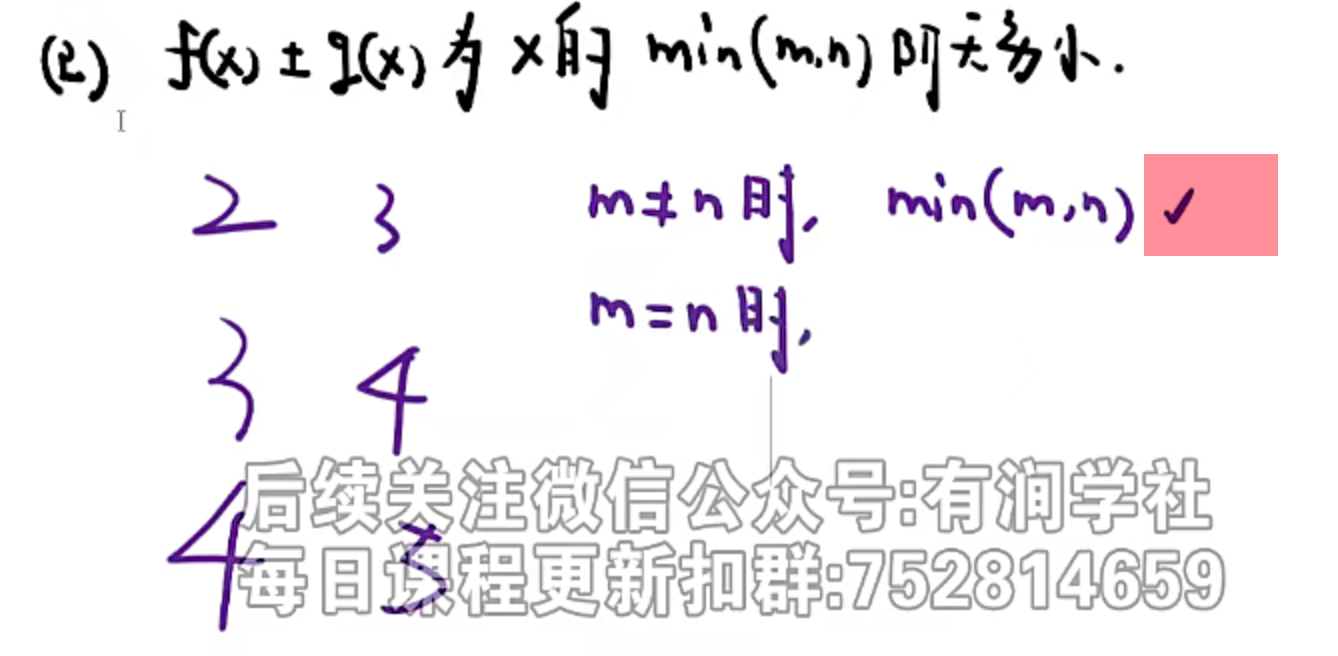 (2) f(x) ± g(x) 为 x 的 min(m,n) 阶无穷小.
2 3 m≠n 时, min(m,n) ✓
m=n 时,
3 4
后续关注微信公众号:有润学社
4 3
每日课程更新扣群:752814659